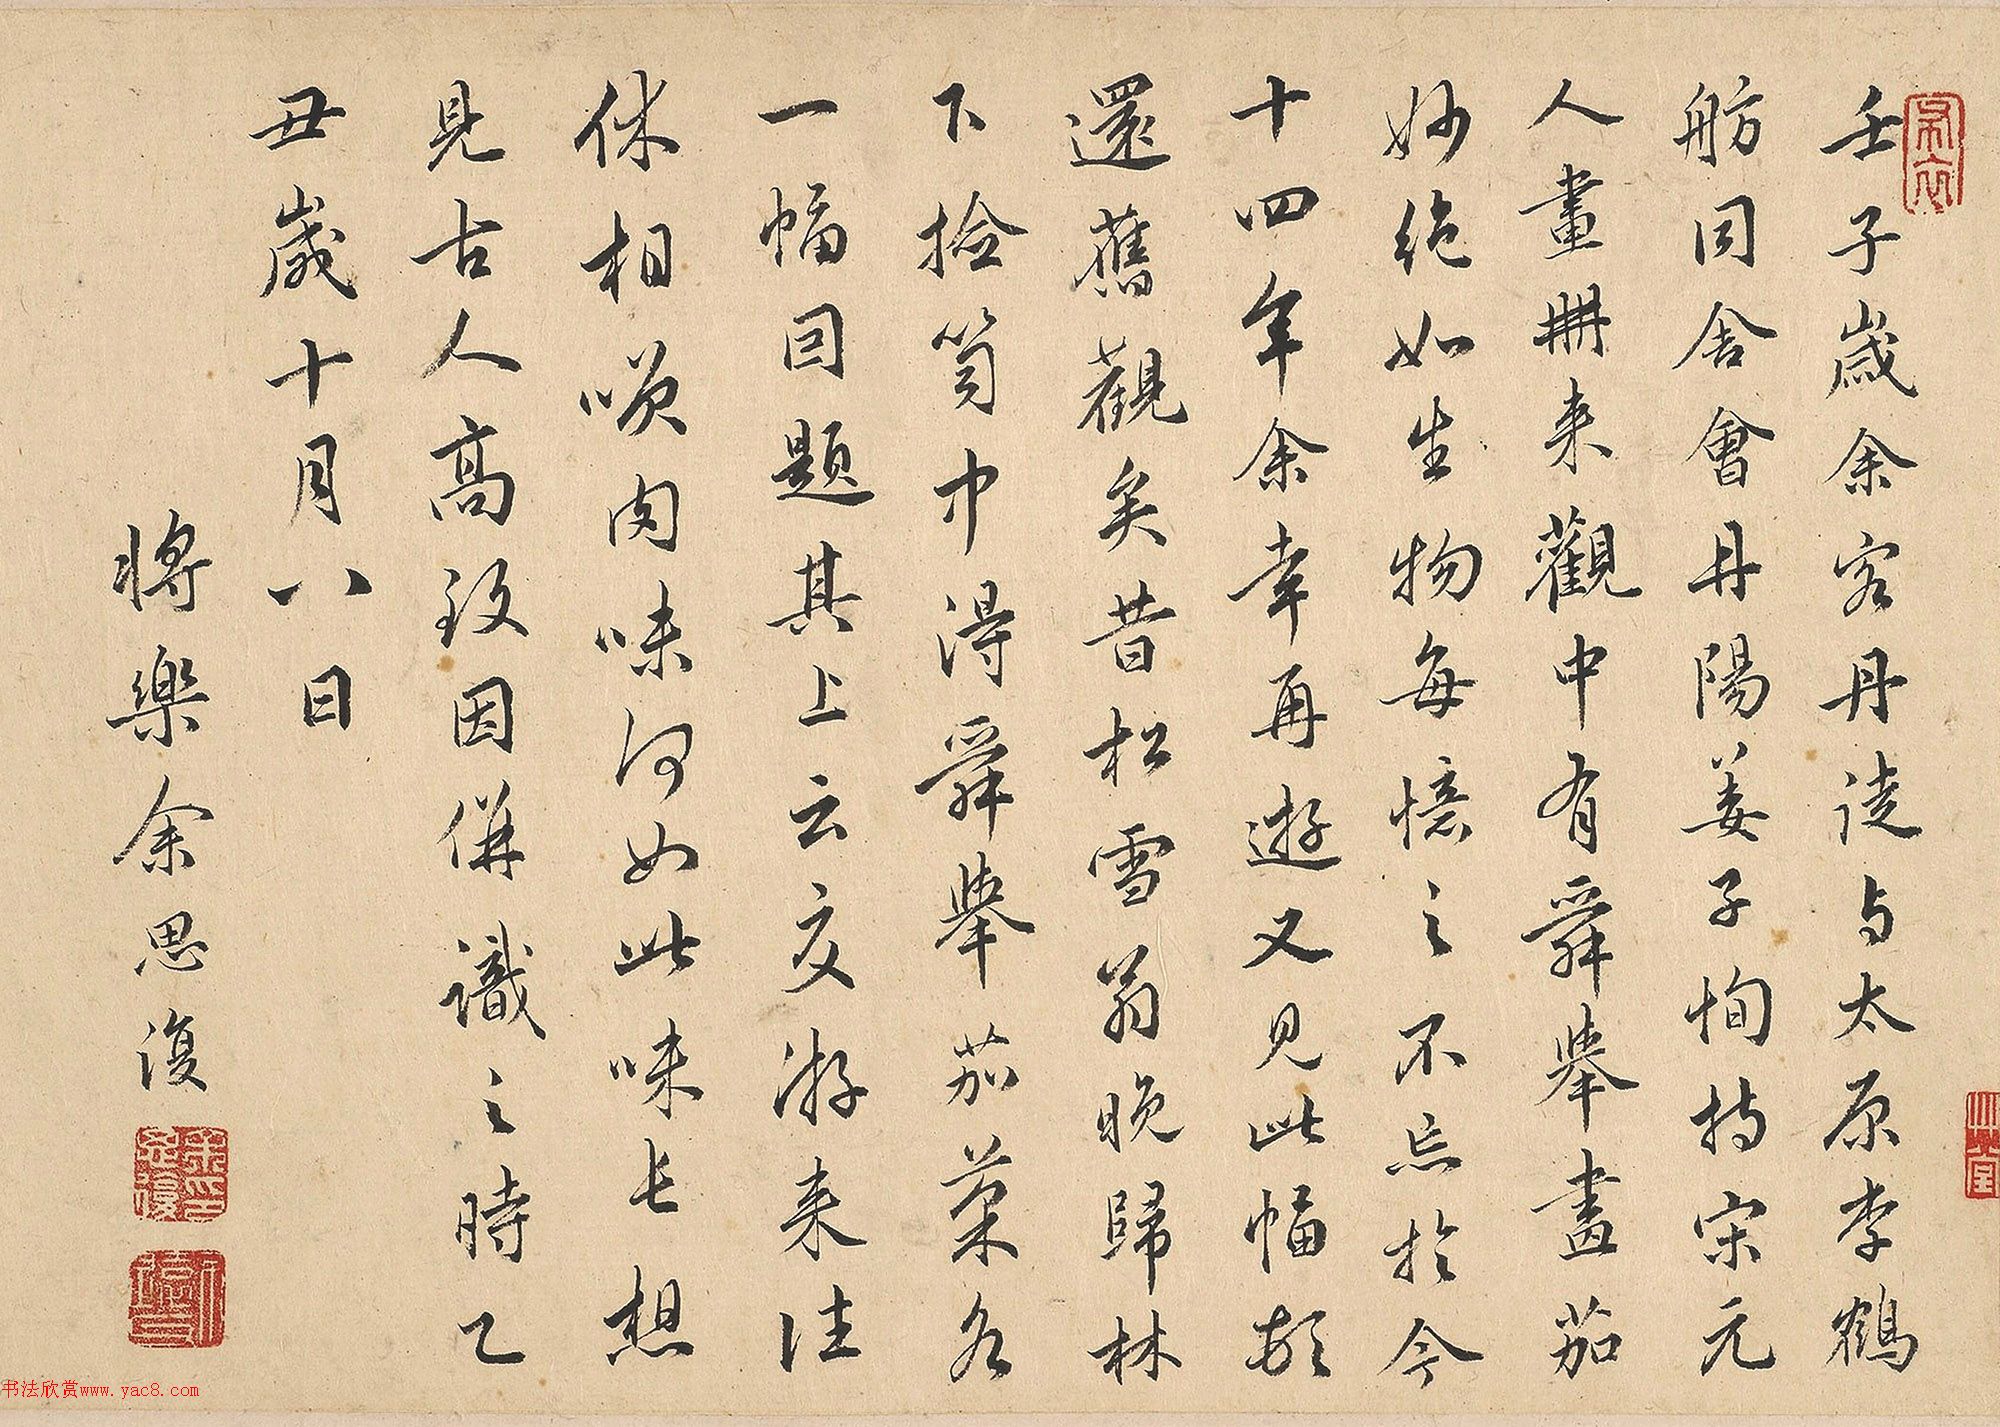 壬子歲余客丹徒与太原李鶴
舫同舍會丹陽姜子恂持宋元
人畫冊来觀中有舜舉畫茄
妙绝如生物每憶之不忘於今
十四年余幸再遊又見此幅頓
還舊觀矣昔松雪翁晚歸林
下撿笥中得舜舉茄菜各
一幅因題其上云交游来往
休相噗肉味何如此味長想
見古人高致因傋識之時乙
丑歲十月八日
將樂余思復
书法欣赏www.yac8.com